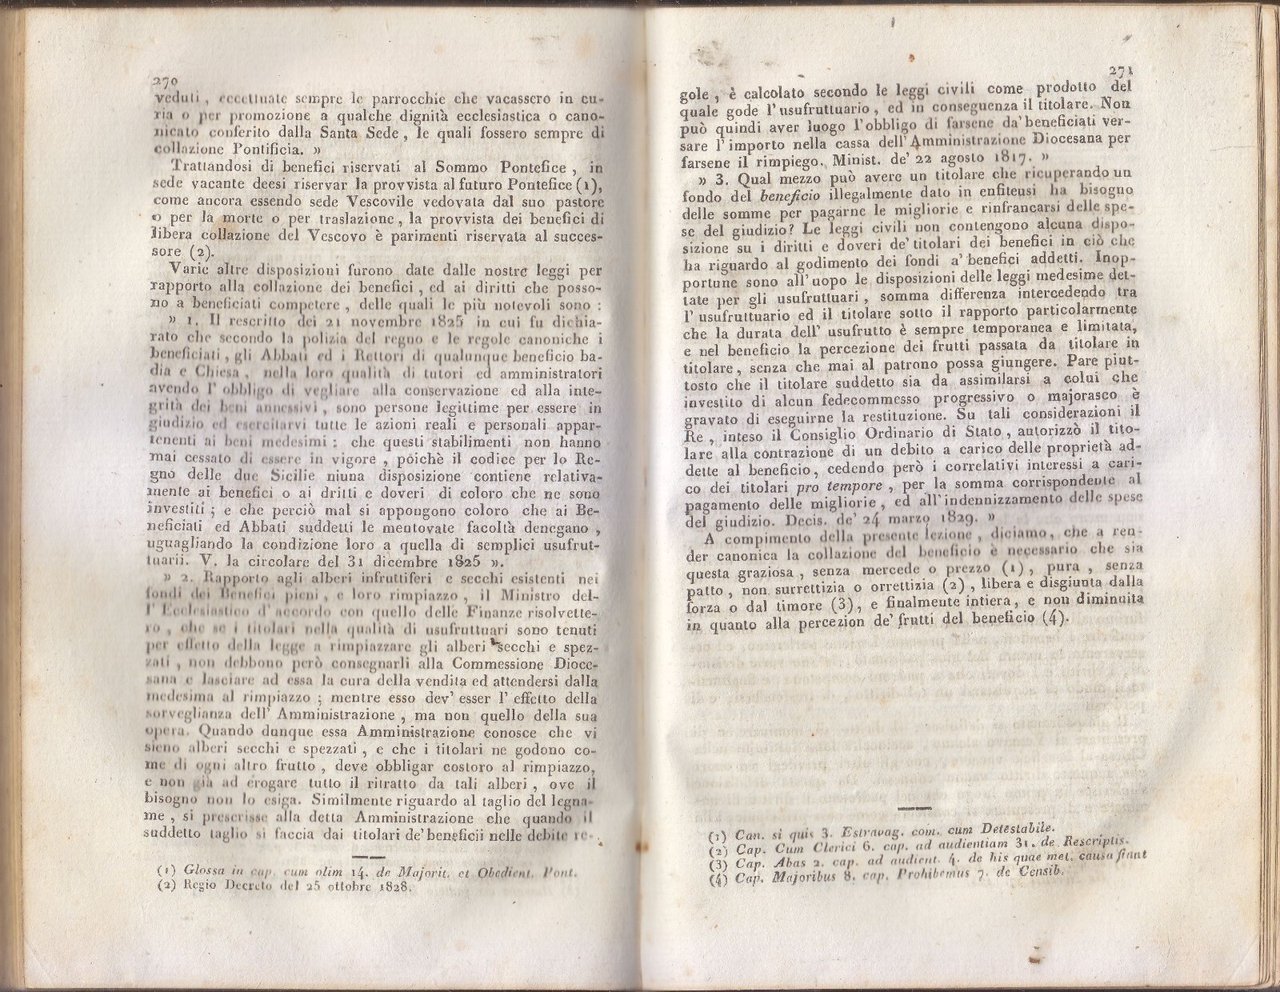 270
veduti , eccettuate sempre le parrocchie che vacassero in cu-
ria o per promozione a qualche dignità ecclesiastica o cano-
nicato conferito dalla Santa Sede , le quali fossero sempre di
collazione Pontificia. »
Trattandosi di benefici riservati al Sommo Pontefice , in
sede vacante deesi riservar la provvista al futuro Pontefice (1),
come ancora essendo sede Vescovile vedovata dal suo pastore
o per la morte o per traslazione , la provvista dei benefici di
libera collazione del Vescovo è parimenti riservata al succes-
sore (2).
Varie altre disposizioni furono date dalle nostre leggi per
rapporto alla collazione dei benefici , ed ai diritti che posso-
no a beneficiati competere , delle quali le più notevoli sono :
» 1. Il rescritto dei 21 novembre 1825 in cui fu dichia-
rato che secondo la polizia del regno e le regole canoniche i
beneficiati , gli Abbati ed i Rettori di qualunque beneficio ba-
dia e Chiesa , nella loro qualità di tutori ed amministratori
avendo l' obbligo di vegliare alla conservazione ed alla inte-
grità dei beni annessivi , sono persone legittime per essere in
giudizio ed esercitarvi tutte le azioni reali e personali appar-
tenenti ai beni medesimi : che questi stabilimenti non hanno
mai cessato di essere in vigore , poichè il codice per lo Re-
gno delle due Sicilie niuna disposizione contiene relativa-
mente ai benefici o ai dritti e doveri di coloro che ne sono
investiti ; e che perciò mal si appongono coloro che ai Be-
neficiati ed Abbati suddetti le mentovate facoltà denegano ,
uguagliando la condizione loro a quella di semplici usufrut-
tuarii. V. la circolare del 31 dicembre 1825 ».
» 2. Rapporto agli alberi infruttiferi e secchi esistenti nei
fondi dei Benefici pieni , e loro rimpiazzo , il Ministro del-
l' Ecclesiastico d' accordo con quello delle Finanze risolvette-
ro , che se i titolari nella qualità di usufruttuari sono tenuti
per effetto della legge a rimpiazzare gli alberi secchi e spez-
zati , non debbono però consegnarli alla Commessione Dioce-
sana e lasciare ad essa la cura della vendita ed attendersi dalla
medesima al rimpiazzo ; mentre esso dev' esser l' effetto della
sorveglianza dell' Amministrazione , ma non quello della sua
opera. Quando dunque essa Amministrazione conosce che vi
sieno alberi secchi e spezzati , e che i titolari ne godono co-
me di ogni altro frutto , deve obbligar costoro al rimpiazzo,
e non già ad erogare tutto il ritratto da tali alberi , ove il
bisogno non lo esiga. Similmente riguardo al taglio del legna-
me , si prescrisse alla detta Amministrazione che quando il
suddetto taglio si faccia dai titolari de' beneficii nelle debite re-
(1) Glossa in cap. cum olim 14. de Majorit. et Obedient. Pont.
(2) Regio Decreto del 25 ottobre 1828.
271
gole , è calcolato secondo le leggi civili come prodotto del
quale gode l' usufruttuario , ed in conseguenza il titolare. Non
può quindi aver luogo l'obbligo di farsene da' beneficiati ver-
sare l' importo nella cassa dell' Amministrazione Diocesana per
farsene il rimpiego. Minist. de' 22 agosto 1817. »
» 3. Qual mezzo può avere un titolare che ricuperando un
fondo del beneficio illegalmente dato in enfiteusi ha bisogno
delle somme per pagarne le migliorie e rinfrancarsi delle spe-
se del giudizio? Le leggi civili non contengono alcuna dispo-
sizione su i diritti e doveri de' titolari dei benefici in ciò che
ha riguardo al godimento dei fondi a' benefici addetti. Inop-
portune sono all' uopo le disposizioni delle leggi medesime det-
tate per gli usufruttuari , somma differenza intercedendo tra
l' usufruttuario ed il titolare sotto il rapporto particolarmente
che la durata dell' usufrutto è sempre temporanea e limitata,
e nel beneficio la percezione dei frutti passata da titolare in
titolare , senza che mai al patrono possa giungere. Pare piut-
tosto che il titolare suddetto sia da assimilarsi a colui che
investito di alcun fedecommesso progressivo o majorasco è
gravato di eseguirne la restituzione. Su tali considerazioni il
Re , inteso il Consiglio Ordinario di Stato , autorizzò il tito-
lare alla contrazione di un debito a carico delle proprietà ad-
dette al beneficio , cedendo però i correlativi interessi a cari-
co dei titolari pro tempore , per la somma corrispondente al
pagamento delle migliorie , ed all' indennizzamento delle spese
del giudizio. Decis. de' 24 marzo 1829. »
A compimento della presente lezione , diciamo , che a ren-
der canonica la collazione del beneficio è necessario che sia
questa graziosa , senza mercede o prezzo (1) , pura , senza
patto , non surrettizia o orrettizia (2) , libera e disgiunta dalla
forza o dal timore (3) , e finalmente intiera , e non diminuita
in quanto alla percezion de' frutti del beneficio (4).
(1) Can. si quis 3. Estravag. com. cum Detestabile.
(2) Cap. Cum Clerici 6. cap. ad audientiam 31. de Rescriptis.
(3) Cap. Abas 2. cap. ad audient. 4. de his quae met. causa fiant
(4) Cap. Majoribus 8. cap. Prohibemus 7. de Censib.